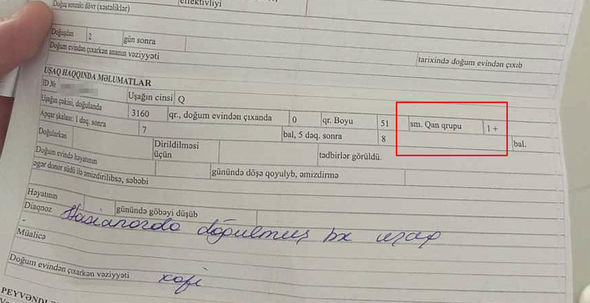 Doğuş sonrakı dövr (xəstəliklər)
effektivliyi
Doğuşdan 2 gün sonra
Doğum evindən çıxarkən ananın vəziyyəti
tarixində doğum evindən çıxıb
UŞAQ HAQQINDA MƏLUMATLAR
ID № Uşağın cinsi Q
Uşağın çəkisi, doğulanda 3160 qr., doğum evindən çıxanda 0 qr. Boyu 51 sm. Qan qrupu 1 +
Apqar şkalası: 1 dəq. sonra 7 bal, 5 dəq. sonra 8 bal.
Doğularkən Dirildilməsi üçün tədbirlər görüldü.
Doğum evində həyatının günündə döşə qoyulyb, əmizdirmə
əgər donor südü ilə əmizdirilibsə, səbəbi
Həyatının günündə göbəyi düşüb
Diaqnoz doğulmuş uşaq
Müalicə
Doğum evindən çıxarkən vəziyyəti kafi